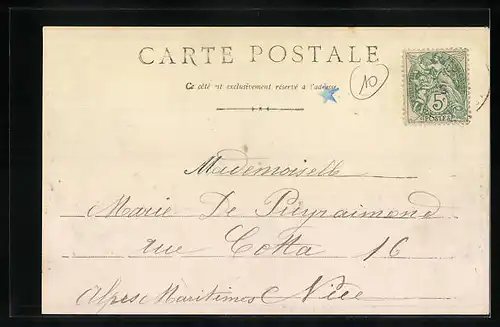 CARTE POSTALE
Ce côté est exclusivement réservé à l'adresse
10
5
POSTES
Mademoiselle
Marie De Puyraimond
rue Cotta 16
Alpes Maritimes Nice